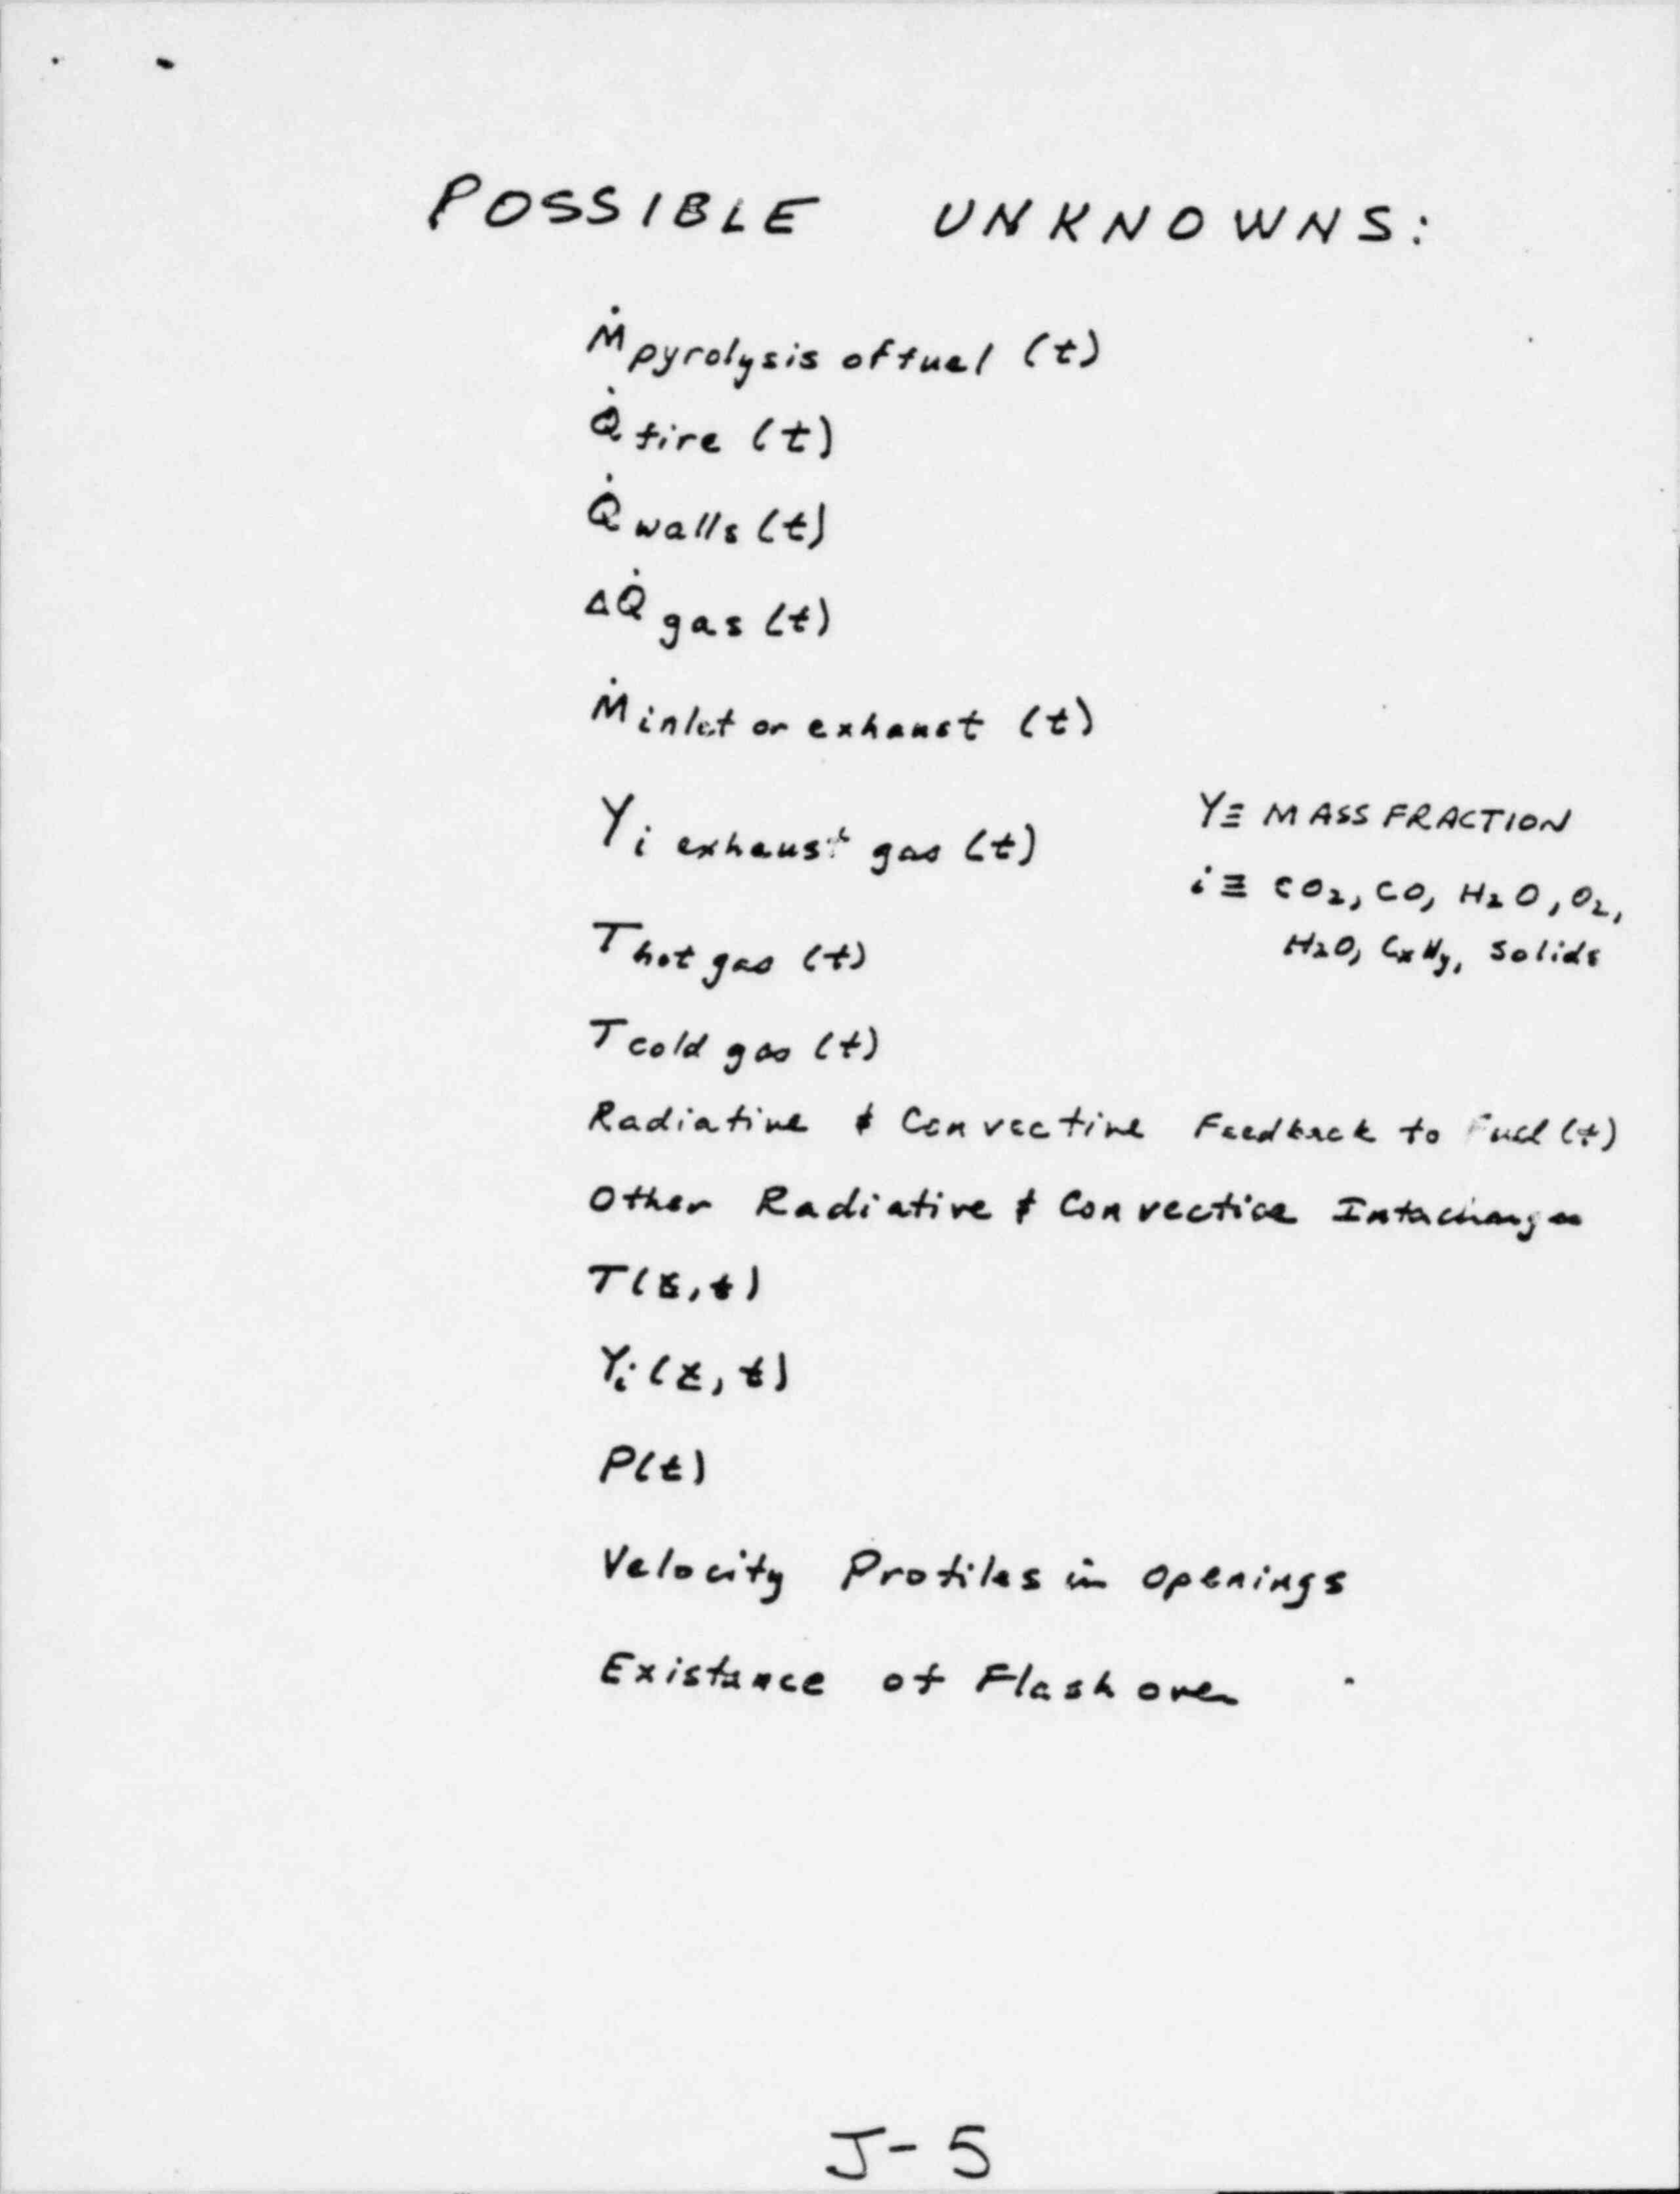 POSSIBLE UNKNOWNS:
Ṁ pyrolysis of fuel (t)
Q̇ fire (t)
Q̇ walls (t)
ΔQ̇ gas (t)
Ṁ inlet or exhaust (t)
Yi exhaust gas (t)
Y≡ MASS FRACTION
i≡ CO₂, CO, H₂O, O₂,
H₂O, CxHy, Solids
T hot gas (t)
T cold gas (t)
Radiative & Convective Feedback to Fuel (t)
Other Radiative & Convective Interchanges
T(z,t)
Yi(z,t)
P(t)
Velocity Profiles in Openings
Existance of Flashover
J-5